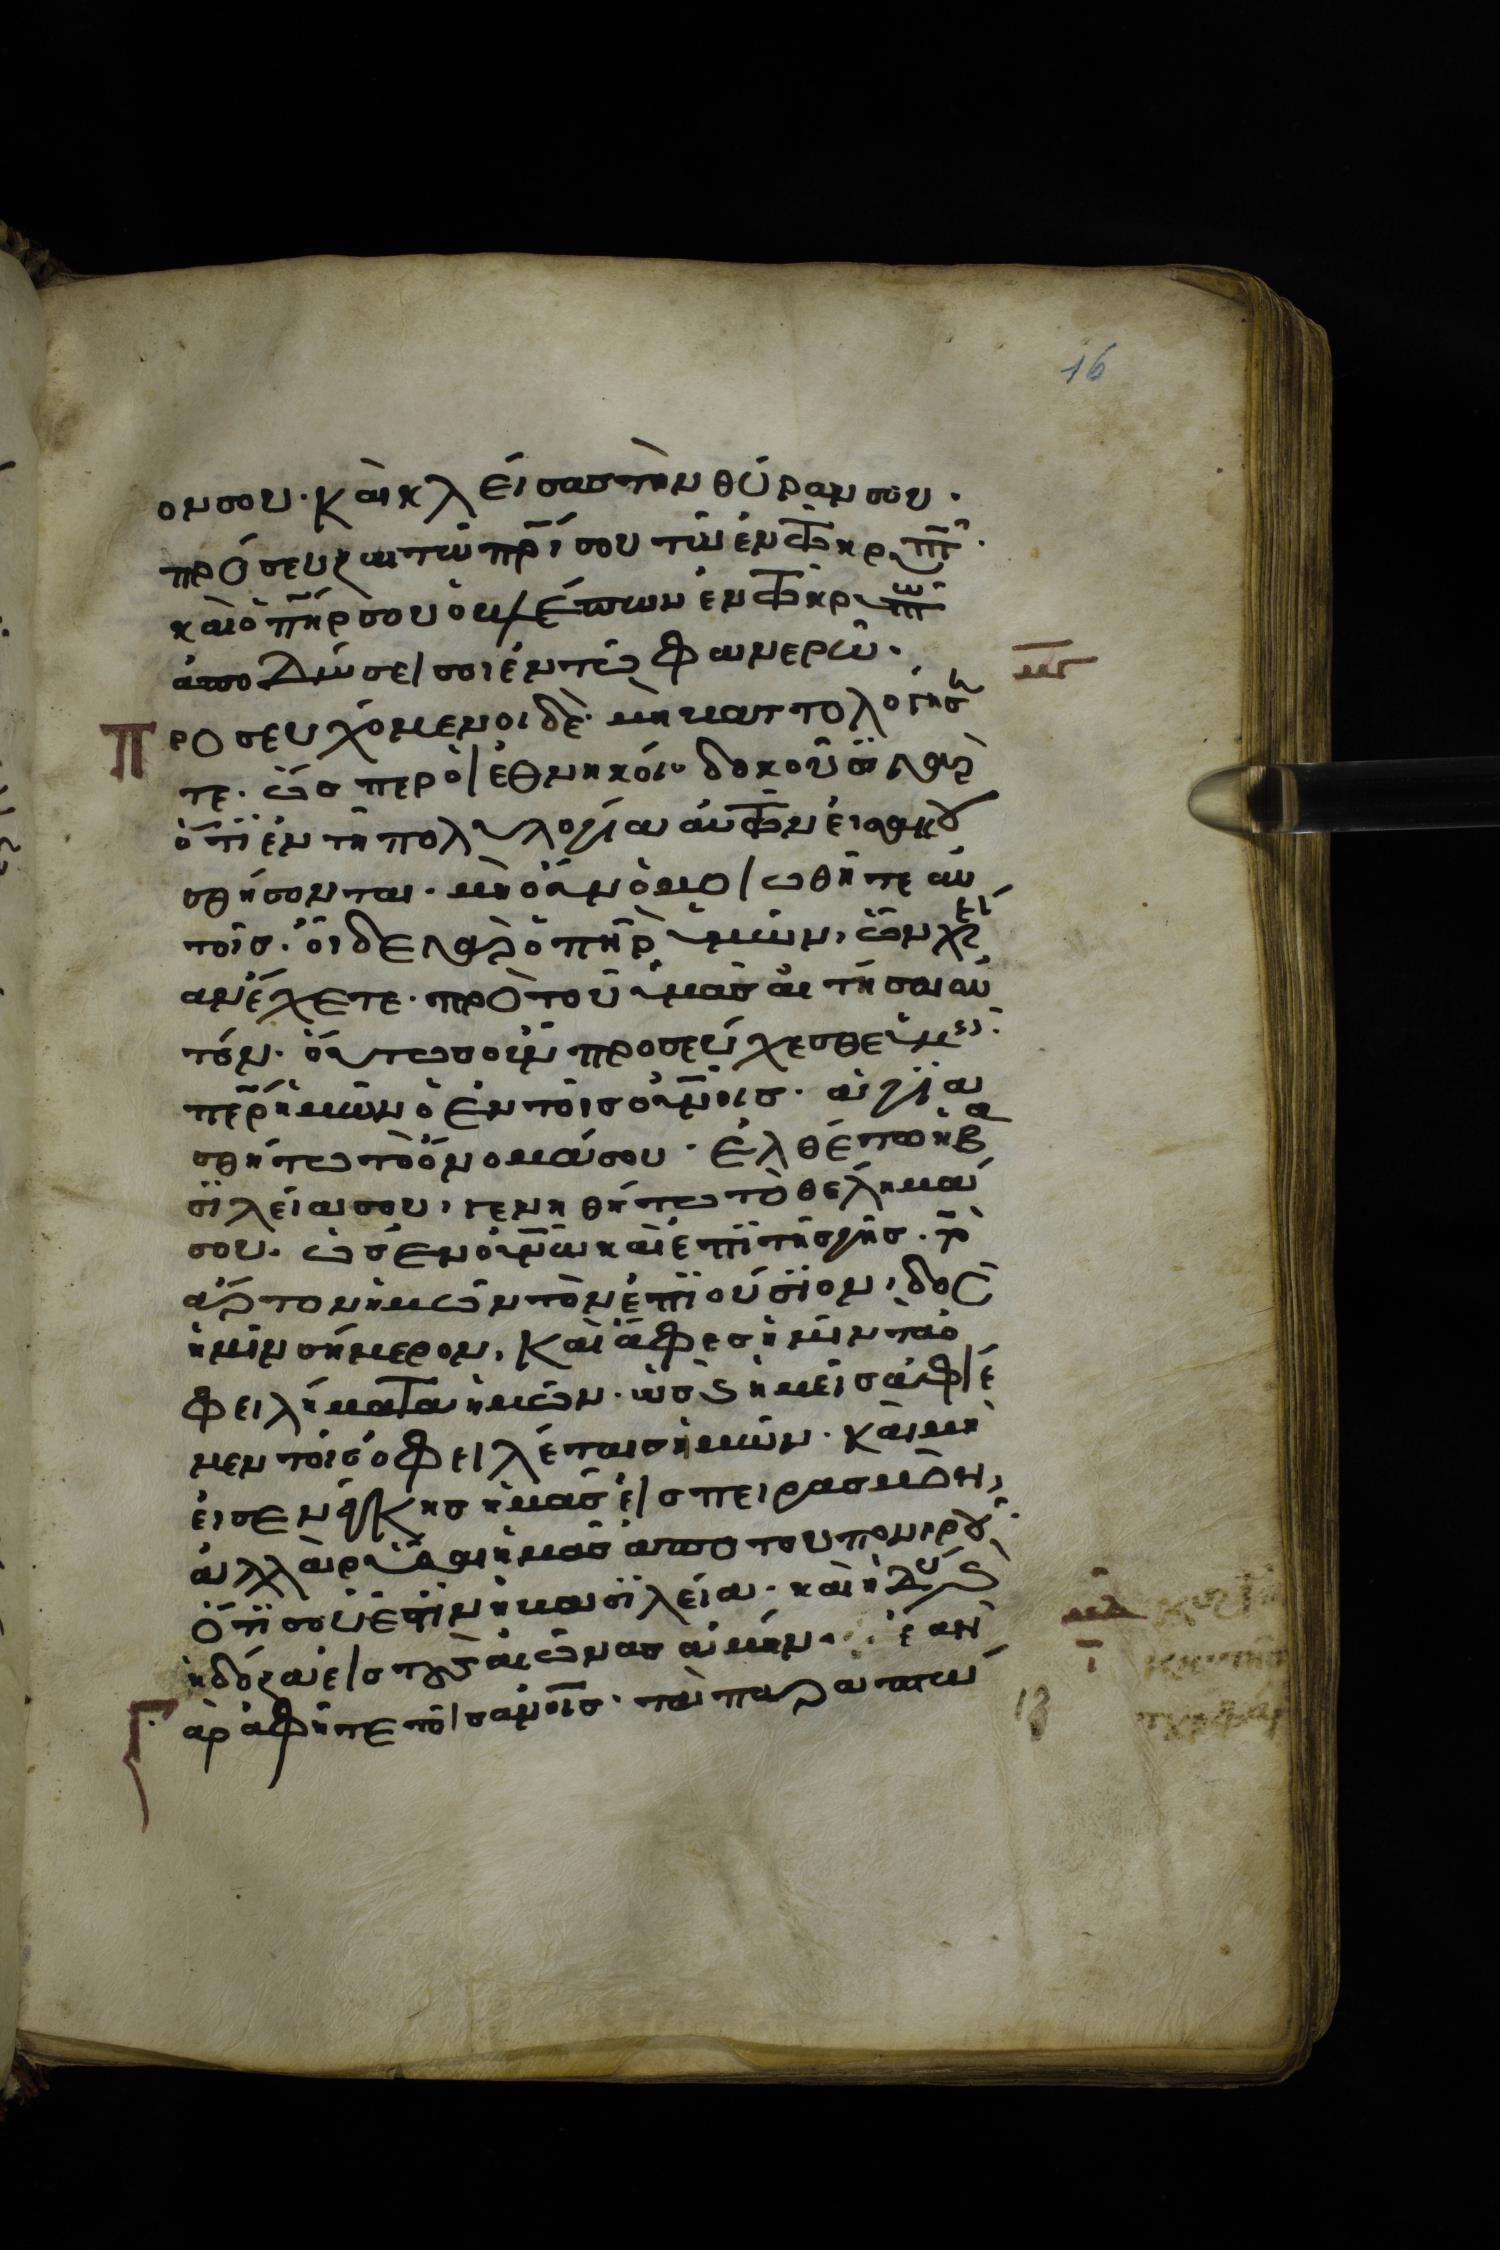 16
ον σου · και κλείσας την θύραν σου ·
πρόσευξαι τῶ πρ̅ί σου τῶ ἐν τῶ κρυπτῶ ·
και ὁ πη̅ρ σου ὁ βλέπων ἐν τῶ κρυπτῶ
ἀποδώσει σοι ἐν τῶ φανερῶ ·
μγ
Προσευχόμενοι δὲ · μὴ βαττολογήση
τε · ὥσπερ οἱ ἐθνικοί · δοκοῦσι γὰρ
ὅτι ἐν τῆ πολυλογία αὐτῶν εἰσακου
σθήσονται · μὴ οὖν ὁμοιωθῆτε αὐ
τοῖς · οἶδε γὰρ ὁ πη̅ρ ὑμῶν, ὧν χρεί
αν ἔχετε · πρὸ τοῦ ὑμᾶς αἰτῆσαι αὐ
τόν · οὕτως οὖν προσεύχεσθε ὑμεῖς ·
πε̅ρ ἡμῶν ὁ ἐν τοῖς οὐν̅οις · ἁγια
σθήτω τὸ ὄνομά σου · ἐλθέτω ἡ βα
σιλεία σου, γενηθήτω τὸ θέλημά
σου · ὡς ἐν οὐν̅ω και ἐπι τῆς γῆς · τὸν
ἄρτον ἡμῶν τὸν ἐπιούσιον, δὸς
ἡμῖν σήμερον, Και ἄφες ἡμῖν τὰ ὀ
φειλήματα ἡμῶν · ὡς και ἡμεῖς ἀφίε
μεν τοῖς ὀφειλέταις ἡμῶν · Και μὴ
εἰσενέγκης ἡμᾶς εἰς πειρασμὸν,
ἀλλὰ ῥῦσαι ἡμᾶς ἀπο του πονηροῦ ·
ὅτι σοῦ ἐστιν ἡ βασιλεία · και ἡ δύναμις και
ἡ δόξα εἰς τοὺς αἰῶνας ἀμήν · ἐὰν
μδ
Γὰρ ἀφῆτε τοῖς αν̅οις · τὰ παραπτώ